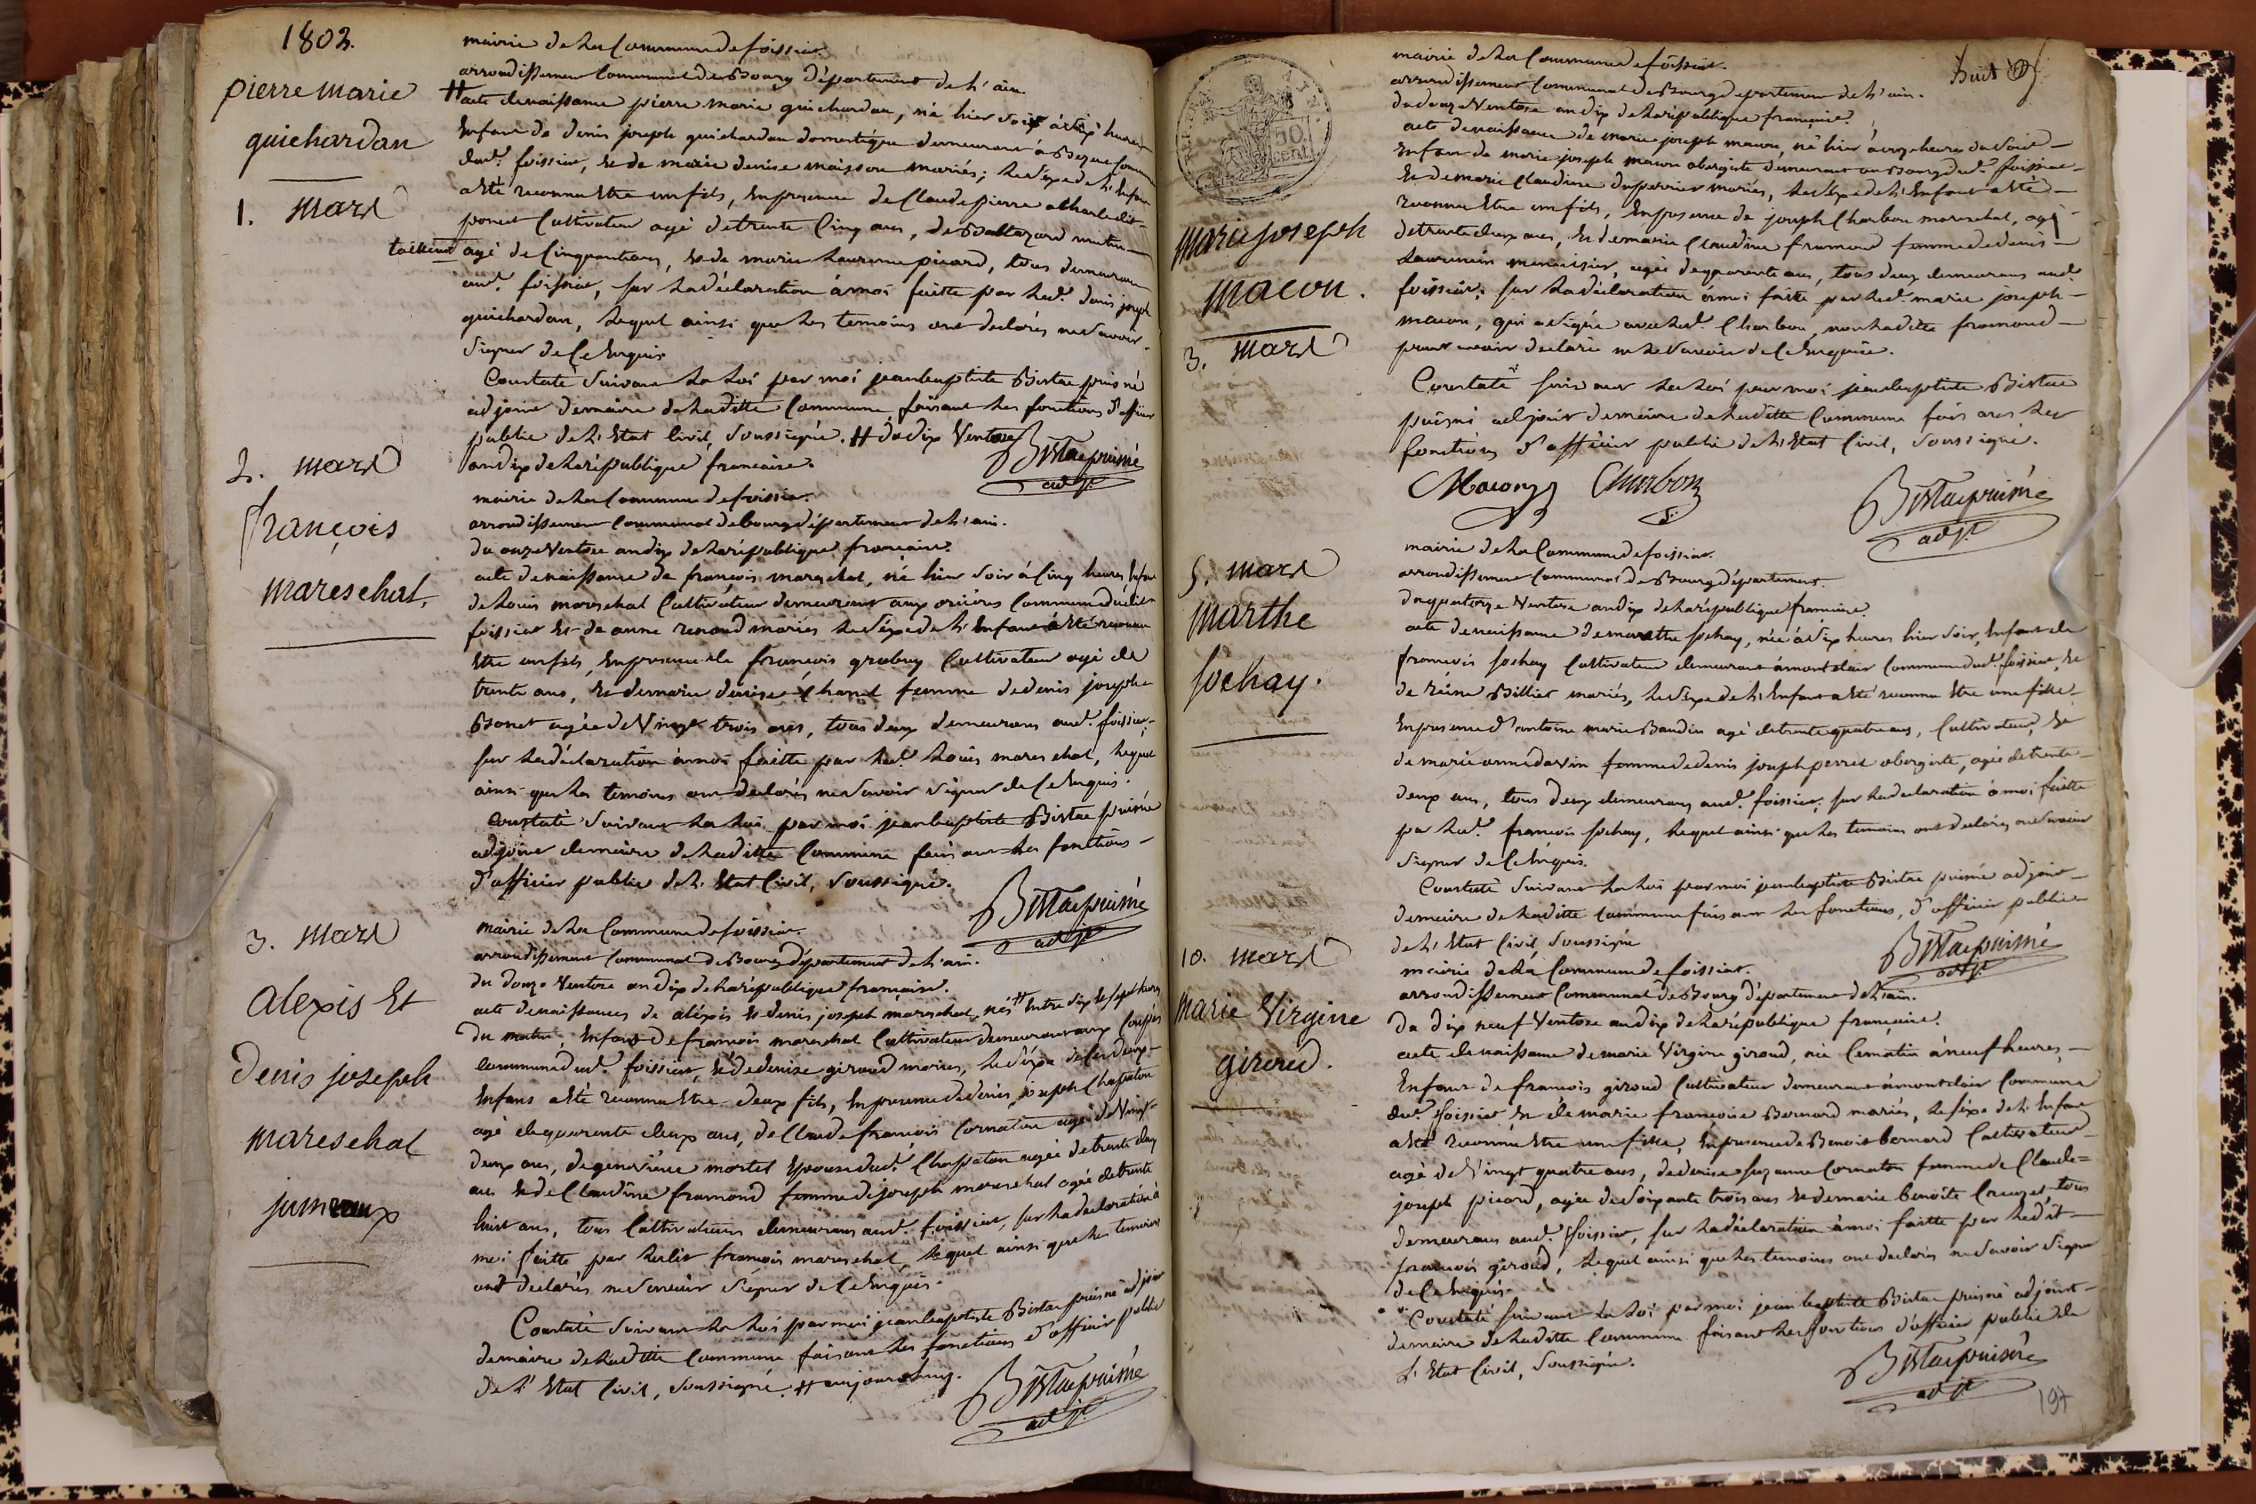 1802.
pierre marie
guichardan
1. mars
mairie de la Commune de foissiat.
arrondissement Communal de Bourg département de l'ain
# acte de naissance pierre marie guichardan, né hier soir à six heures
Enfant de denis joseph guichardan domestique demeurant à Bezne Commune
dud.t foissiat, Et de marie denise maisson mariés; le sexe de l'Enfant
a Eté reconnu Etre un fils, En presence de Claude pierre
ponent Cultivateur agé de trente Cinq ans, de Baltazard mutin
tailleur agé de Cinquante ans, Et de marie Laurence picard, tous demeurans
aud.t foissiat, sur la déclaration à moi faitte par led.t denis joseph
guichardan, lequel ainsi que les temoins ont declarés ne savoir
signer de Ce Enquis
Constaté suivant la loi par moi jean baptiste Bistac puisné
adjoint de maire de laditte Commune, faisant les fonctions d'officier
public de l'Etat Civil, soussigné. # du dix Ventose
an dix de la république française.
Bistac puisné
adjt.
2. mars
françois
mareschal.
mairie de la Commune de foissiat.
arrondissement Communal de bourg département de l'ain.
du onze Ventose an dix de la république française.
acte de naissance de françois mareschal, né hier soir à Cinq heures Enfant
de Louis mareschal Cultivateur demeurant aux orcières Commune dudit
foissiat Et de anne renoud mariés le sexe de l'Enfant a Eté reconnu
Etre un fils, En presence de françois grabuy Cultivateur agé de
trente ans, Et de marie denise Chanel femme de denis joseph
Bonet agée de Vingt trois ans, tous deux demeurans aud.t foissiat,
sur la déclaration à moi faitte par led.t Louis mareschal, lequel
ainsi que les temoins ont declarés ne savoir signer de Ce Enquis.
Constaté suivant la loi par moi jean baptiste Bistac puisné
adjoint de maire de laditte Commune faisant les fonctions
d'officier public de l'Etat Civil, soussigné.
Bistac puisné
adjt.
3. mars
alexis Et
denis joseph
mareschal
jumeaux
mairie de la Commune de foissiat.
arrondissement Communal de Bourg département de l'ain.
du douze Ventose an dix de la république française.
acte de naissances de aléxis Et denis joseph mareschal, nés # Entre six Et sept heures
du matin, Enfans de françois mareschal Cultivateur demeurant aux
Commune dud.t foissiat, Et de denise giroud mariés, le sexe de Ces deux
Enfans a Eté reconnu Etre deux fils, En presence de denis joseph Chapatou
agé de quarente deux ans, de Claude françois Cornaton agé de Vingt
deux ans, de geneviève mortel Epouse dud.t Chapatou agée de trente deux
ans Et de Claudine framond femme de joseph mareschal agée de trente
huit ans, tous Cultivateurs demeurans aud.t foissiat, sur la déclaration à
moi faitte par ledit françois mareschal lequel ainsi que les temoins
ont declarés ne savoir signer de Ce Enquis.
Constaté suivant la loi par moi jean baptiste Bistac puisné adjoint
de maire de laditte Commune faisant les fonctions d'officier public
de l'Etat Civil, soussigné. # aujourdhuy.
Bistac puisné
adjt.
huit
50
cent.
marie joseph
macon.
3. mars
mairie de la Commune de foissiat.
arrondissement Communal de Bourg département de l'ain.
du douze Ventose an dix de la république française.
acte de naissance de marie joseph macon, né hier à onze heures du soir
Enfant de marie joseph macon obergiste demeurant au Bourg dud.t foissiat
Et de marie Claudine duperrier mariés, le sexe de l'Enfant a Eté
reconnu Etre un fils, En presence de joseph Charbon mareschal, agé
de trente deux ans, Et de marie Claudine framond femme de denis
Laurencin menuisier, agée de quarente ans, tous deux demeurans aud.t
foissiat; sur la déclaration à moi faitte par led.t marie joseph
macon, qui a signé avec led.t Charbon, non laditte framond
pour avoir declaré ne le savoir de Ce Enquise.
Constaté suivant la loi par moi jean baptiste Bistac
puisné adjoint de maire de laditte Commune faisant les
fonctions d'officier public de l'Etat Civil, soussigné.
Macon Charbon
Bistac puisné
adjt.
5. mars
marthe
sochay.
mairie de la Commune de foissiat.
arrondissement Communal de Bourg département.
du quatorze Ventose an dix de la république française.
acte de naissance de marthe sochay, née à dix heures hier soir, Enfant de
françois sochay Cultivateur demeurant à montclair Commune dud.t foissiat, Et
de reine Billiet mariés, le sexe de l'Enfant a Eté reconnu Etre une fille
En presence d'antoine marie Baudin agé de trente quatre ans, Cultivateur, Et
de marie anne darvin femme de denis joseph perret obergiste, agée de trente
deux ans, tous deux demeurans aud.t foissiat; sur la declaration à moi faitte
par led.t françois sochay, lequel ainsi que les temoins ont declarés ne savoir
signer de Ce Enquis.
Constaté suivant la loi par moi jean baptiste Bistac puisné adjoint
de maire de laditte Commune faisant les fonctions, d'officier public
de l'Etat Civil soussigné
Bistac puisné
adjt.
10. mars
marie Virginie
giroud.
mairie de la Commune de foissiat.
arrondissement Communal de Bourg département de l'ain.
du dix neuf Ventose an dix de la république française.
acte de naissance de marie Virginie giroud, née Ce matin à neuf heures,
Enfant de françois giroud Cultivateur demeurant à montclair Commune
dud.t foissiat, Et de marie françoise Bernard mariés, le sexe de l'Enfant
a Eté reconnu Etre une fille, En presence de Benoit bernard Cultivateur
agé de Vingt quatre ans, de denise suzanne Cornaton femme de Claude=
joseph picard, agée de soixante trois ans Et de marie benoite Creuzet, tous
demeurans aud.t foissiat, sur la déclaration à moi faitte par ledit
françois giroud, lequel ainsi que les temoins ont declarés ne savoir signer
de Ce Enquis.
Constaté suivant la loi par moi jean baptiste Bistac puisné adjoint
de maire de laditte Commune faisant les fonctions d'officier public de
l'Etat Civil, soussigné.
Bistac puisné
adjt.
197